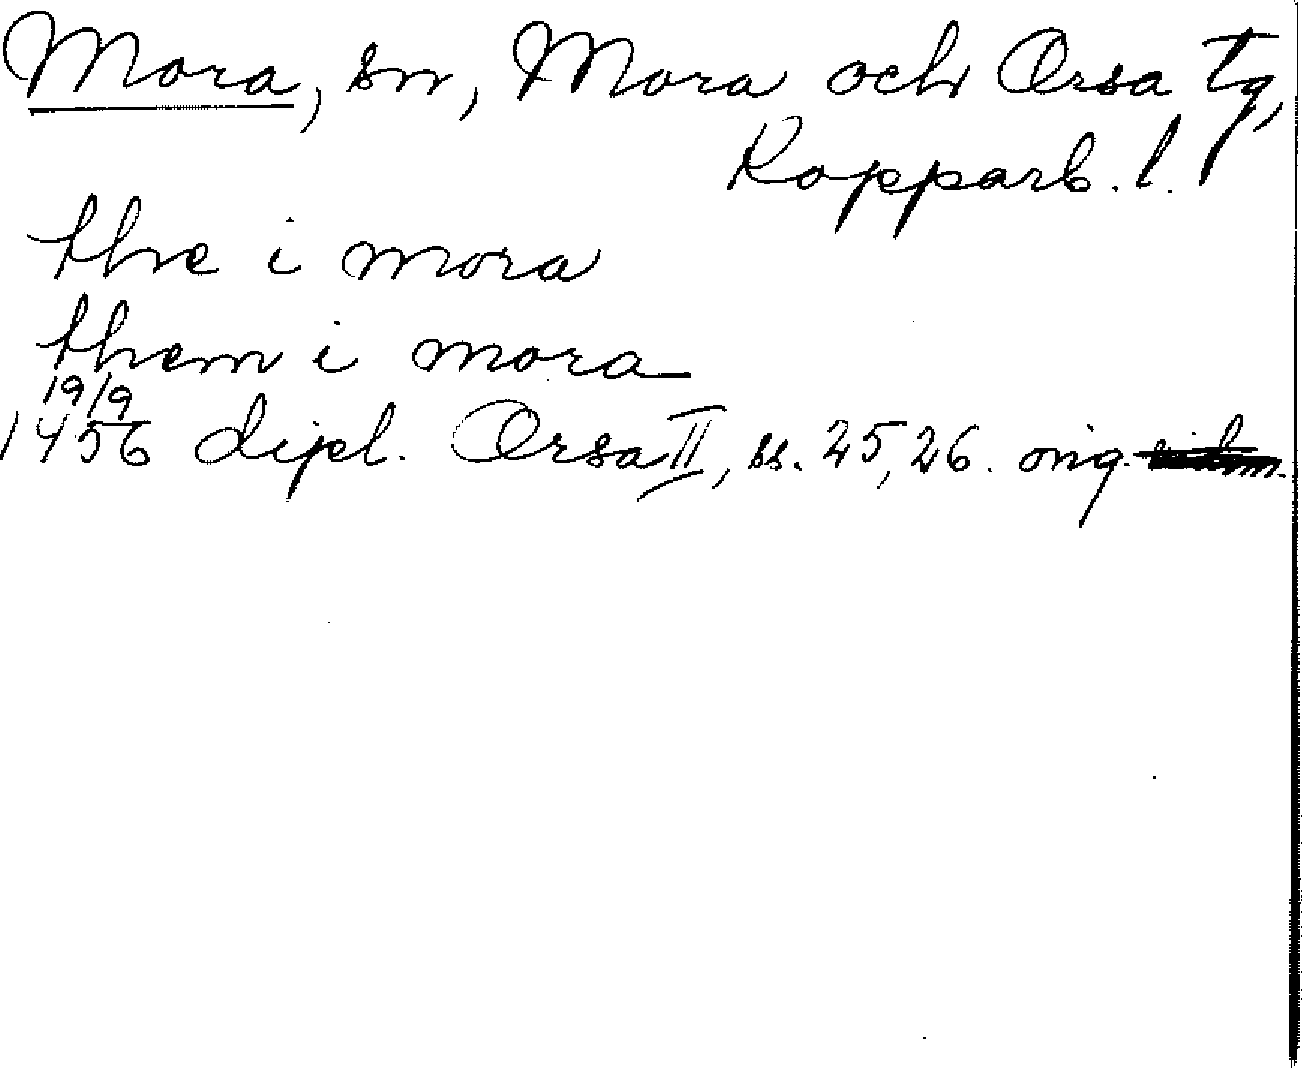 Mora, sn, Mora och Orsa tg,
Kopparb. l.
thre i mora
them i mora
19/9
1456 dipl. Orsa II, ss. 25, 26. orig.